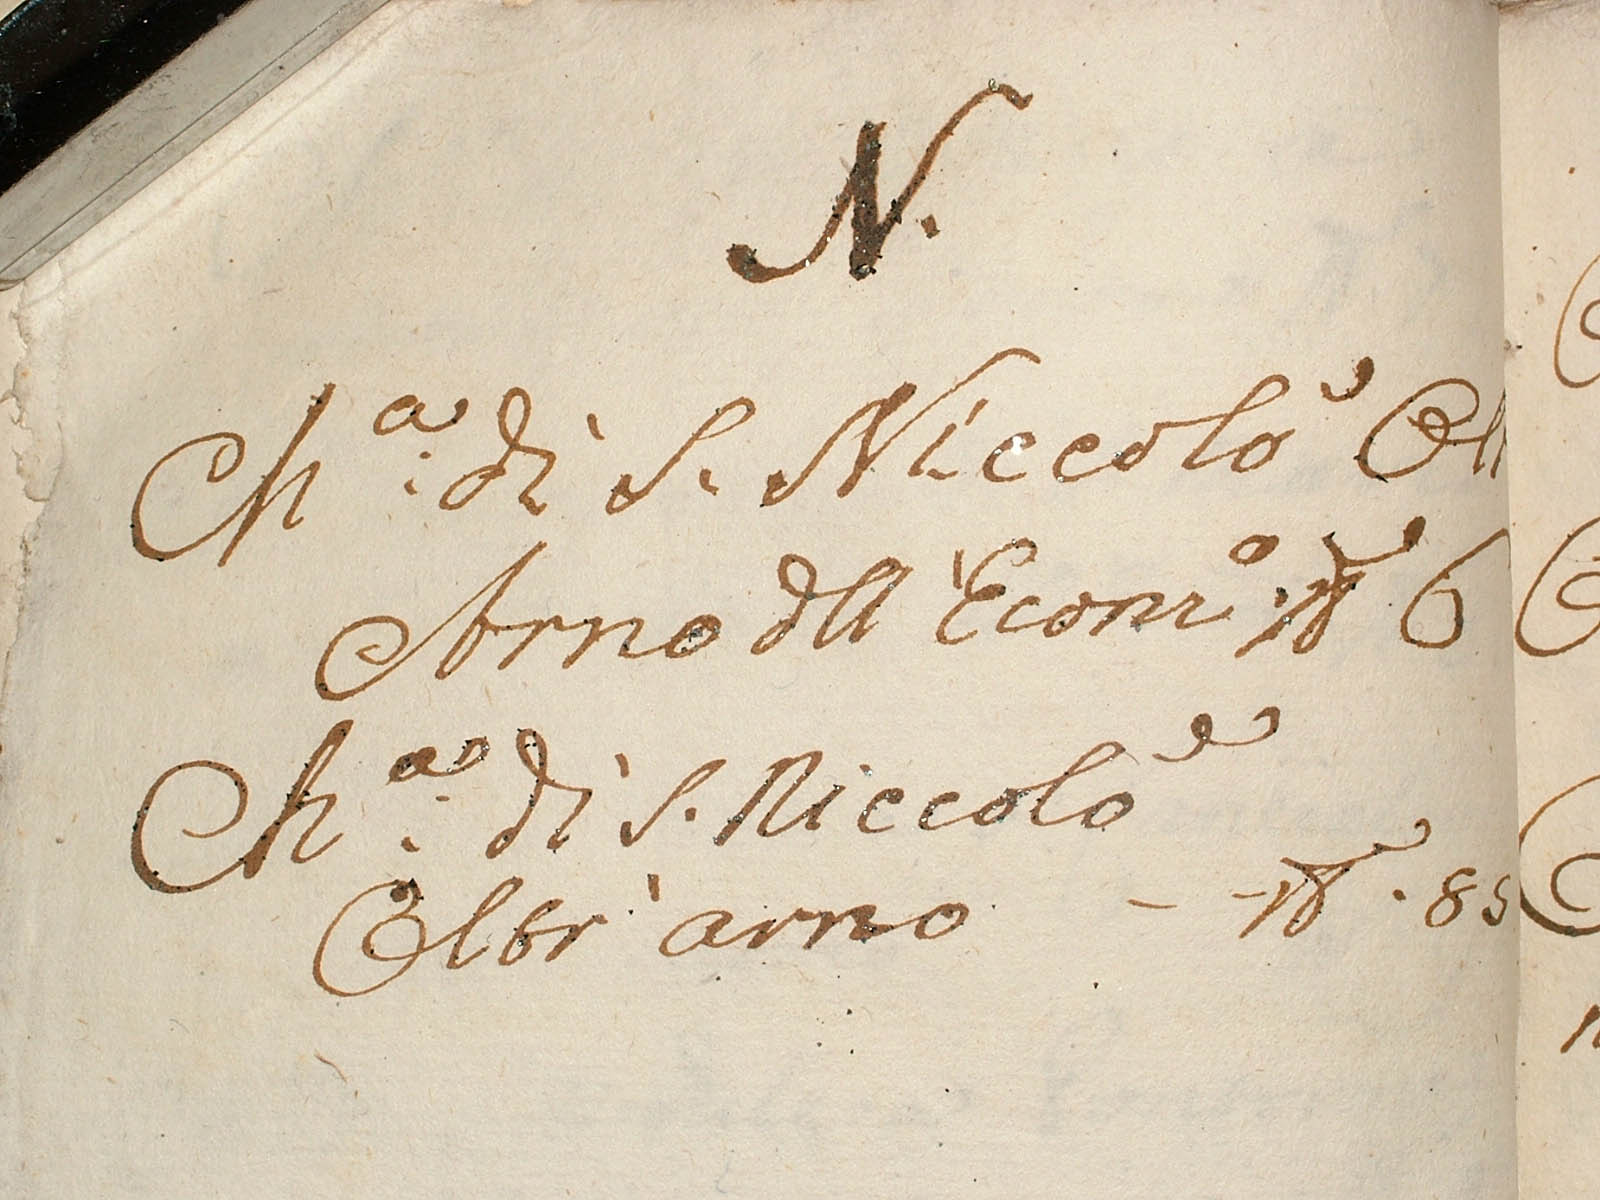 N.
Ch.ª di S. Niccolò Olt
Arno dell'Econm.º 6
Ch.ª di S. Niccolò
Oltr'arno - - . 85